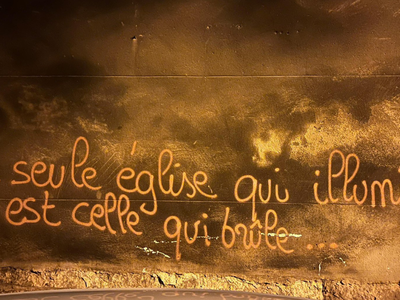 seule église qui illumi
est celle qui brûle ...